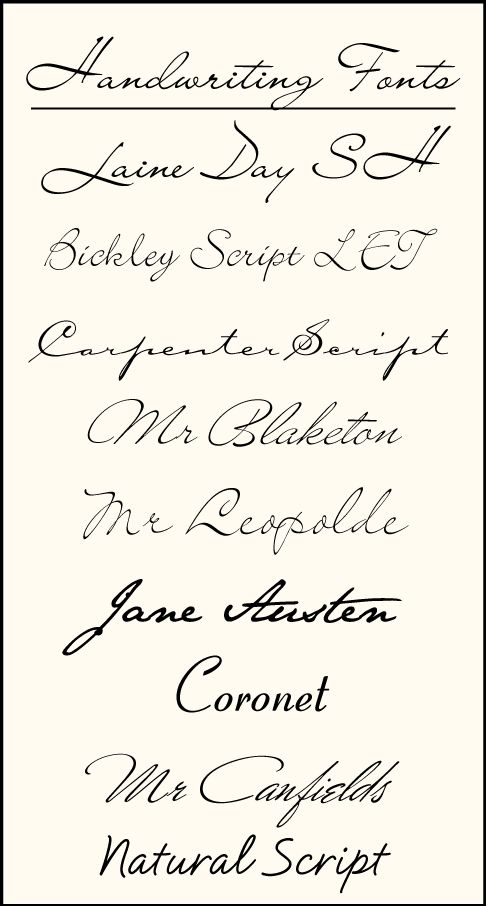 Handwriting Fonts
Laine Day SH
Bickley Script LET
Carpenter Script
Mr Blaketon
Mr Leopolde
Jane Austen
Coronet
Mr Canfields
Natural Script